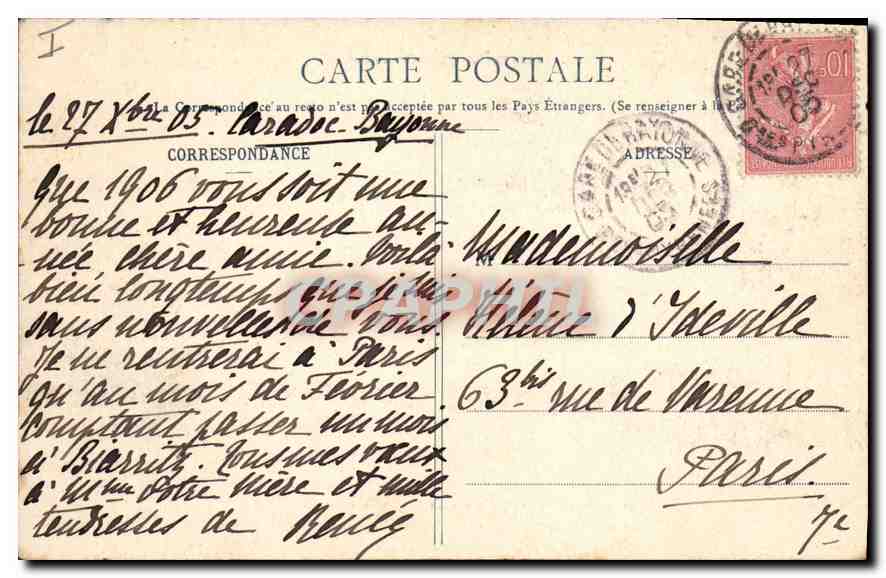 I
CARTE POSTALE
La Correspondance au recto n'est pas acceptée par tous les Pays Étrangers. (Se renseigner à la
le 27 Xbre 05. Caradoc-Bayonne
CORRESPONDANCE
Que 1906 vous soit une
bonne et heureuse an-
née, chère amie. Voilà
bien longtemps que je suis
sans nouvelles de vous.
Je ne rentrerai à Paris
qu'au mois de Février
comptant passer un mois
à Biarritz. Tous mes vœux
à Mme votre mère et mille
tendresses de Renée
ADRESSE
Mademoiselle
Hélène d'Ideville
63bis rue de Varenne
Paris.
7e
GARE DE BAYONNE
CPAPHIL